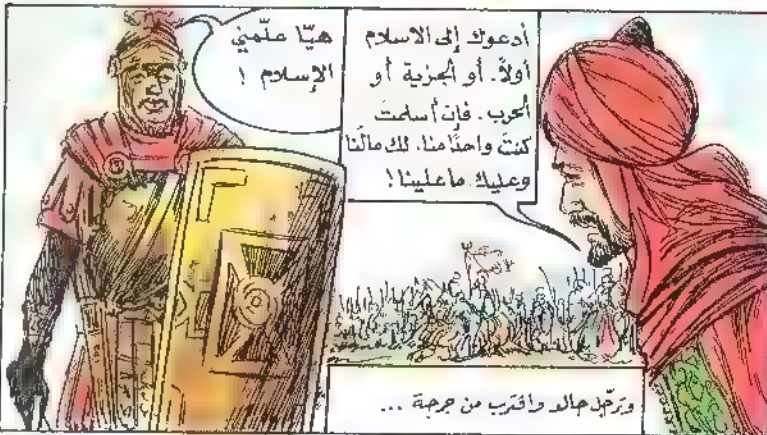 أدعوك إلى الاسلام
أولاً. أو الجزية أو
الحرب. فإن أسلمتَ
كنتَ واحدًا منا. لك مالَنا
وعليك ماعلينا!
هيّا علّمني
الإسلام !
وترجّل خالد واقترب من جرجة ...